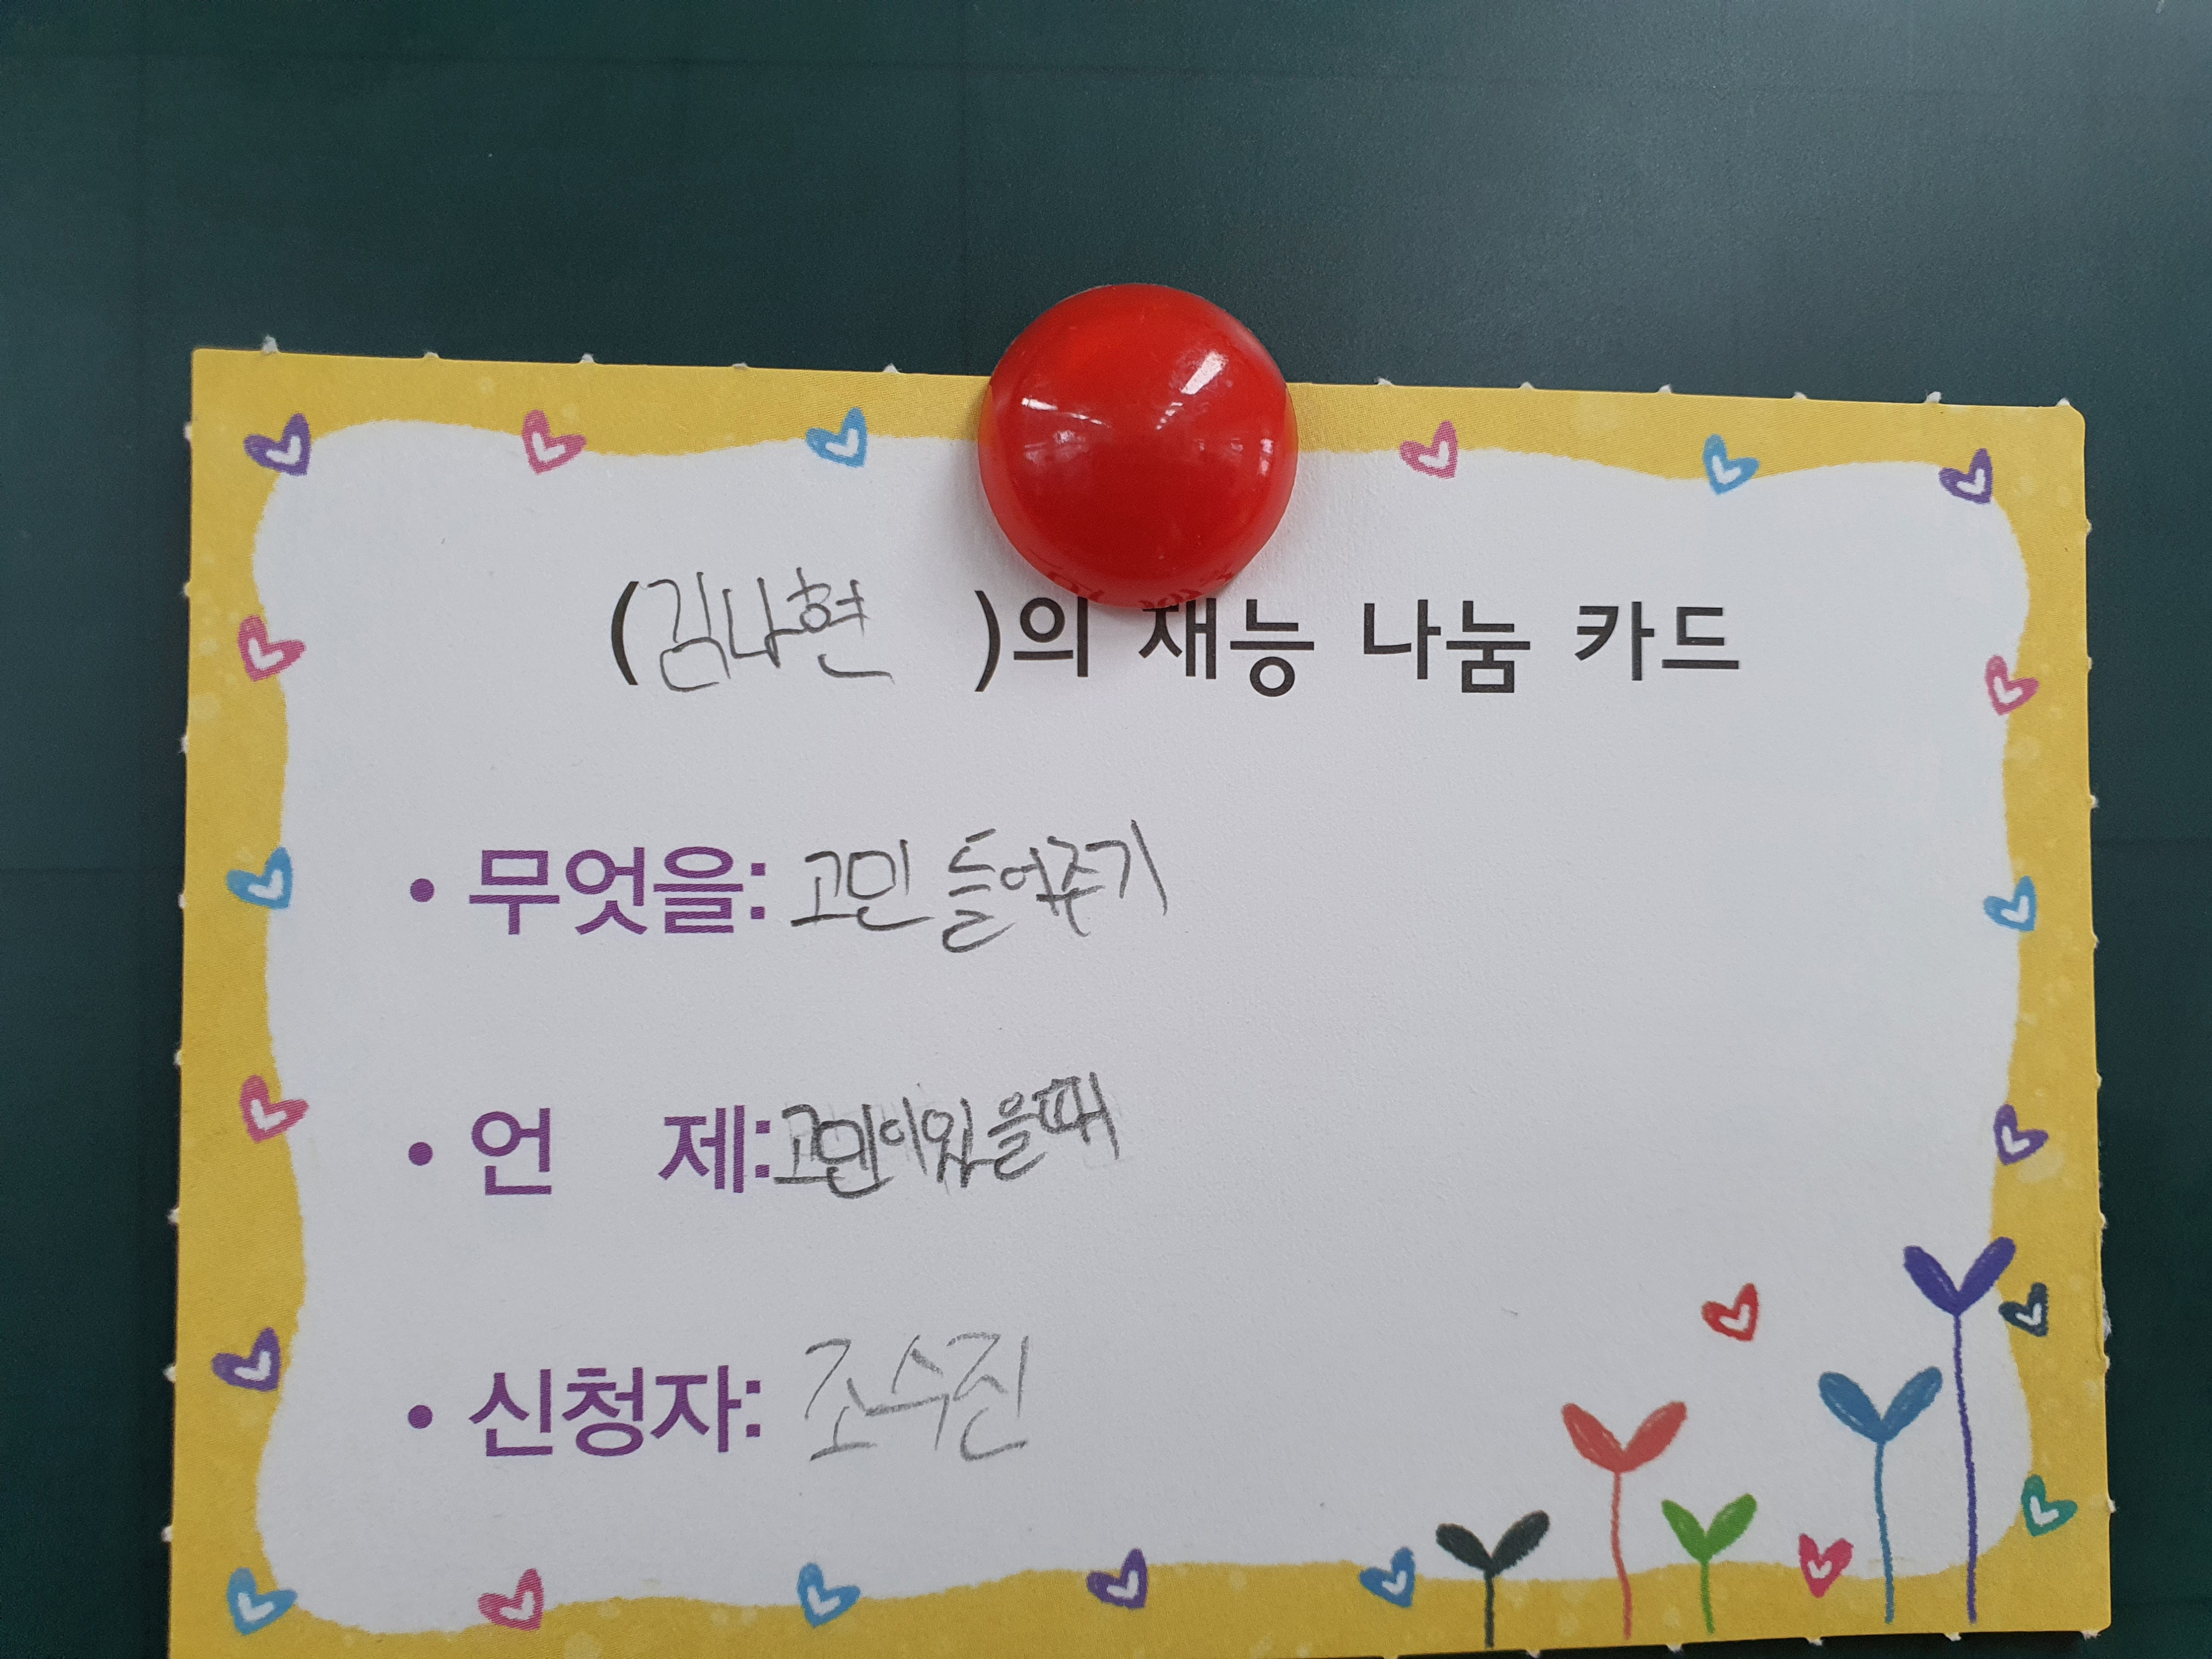 (김나현 )의 재능 나눔 카드
• 무엇을: 고민 들어주기
• 언 제: 고민이있을때
• 신청자: 조수진